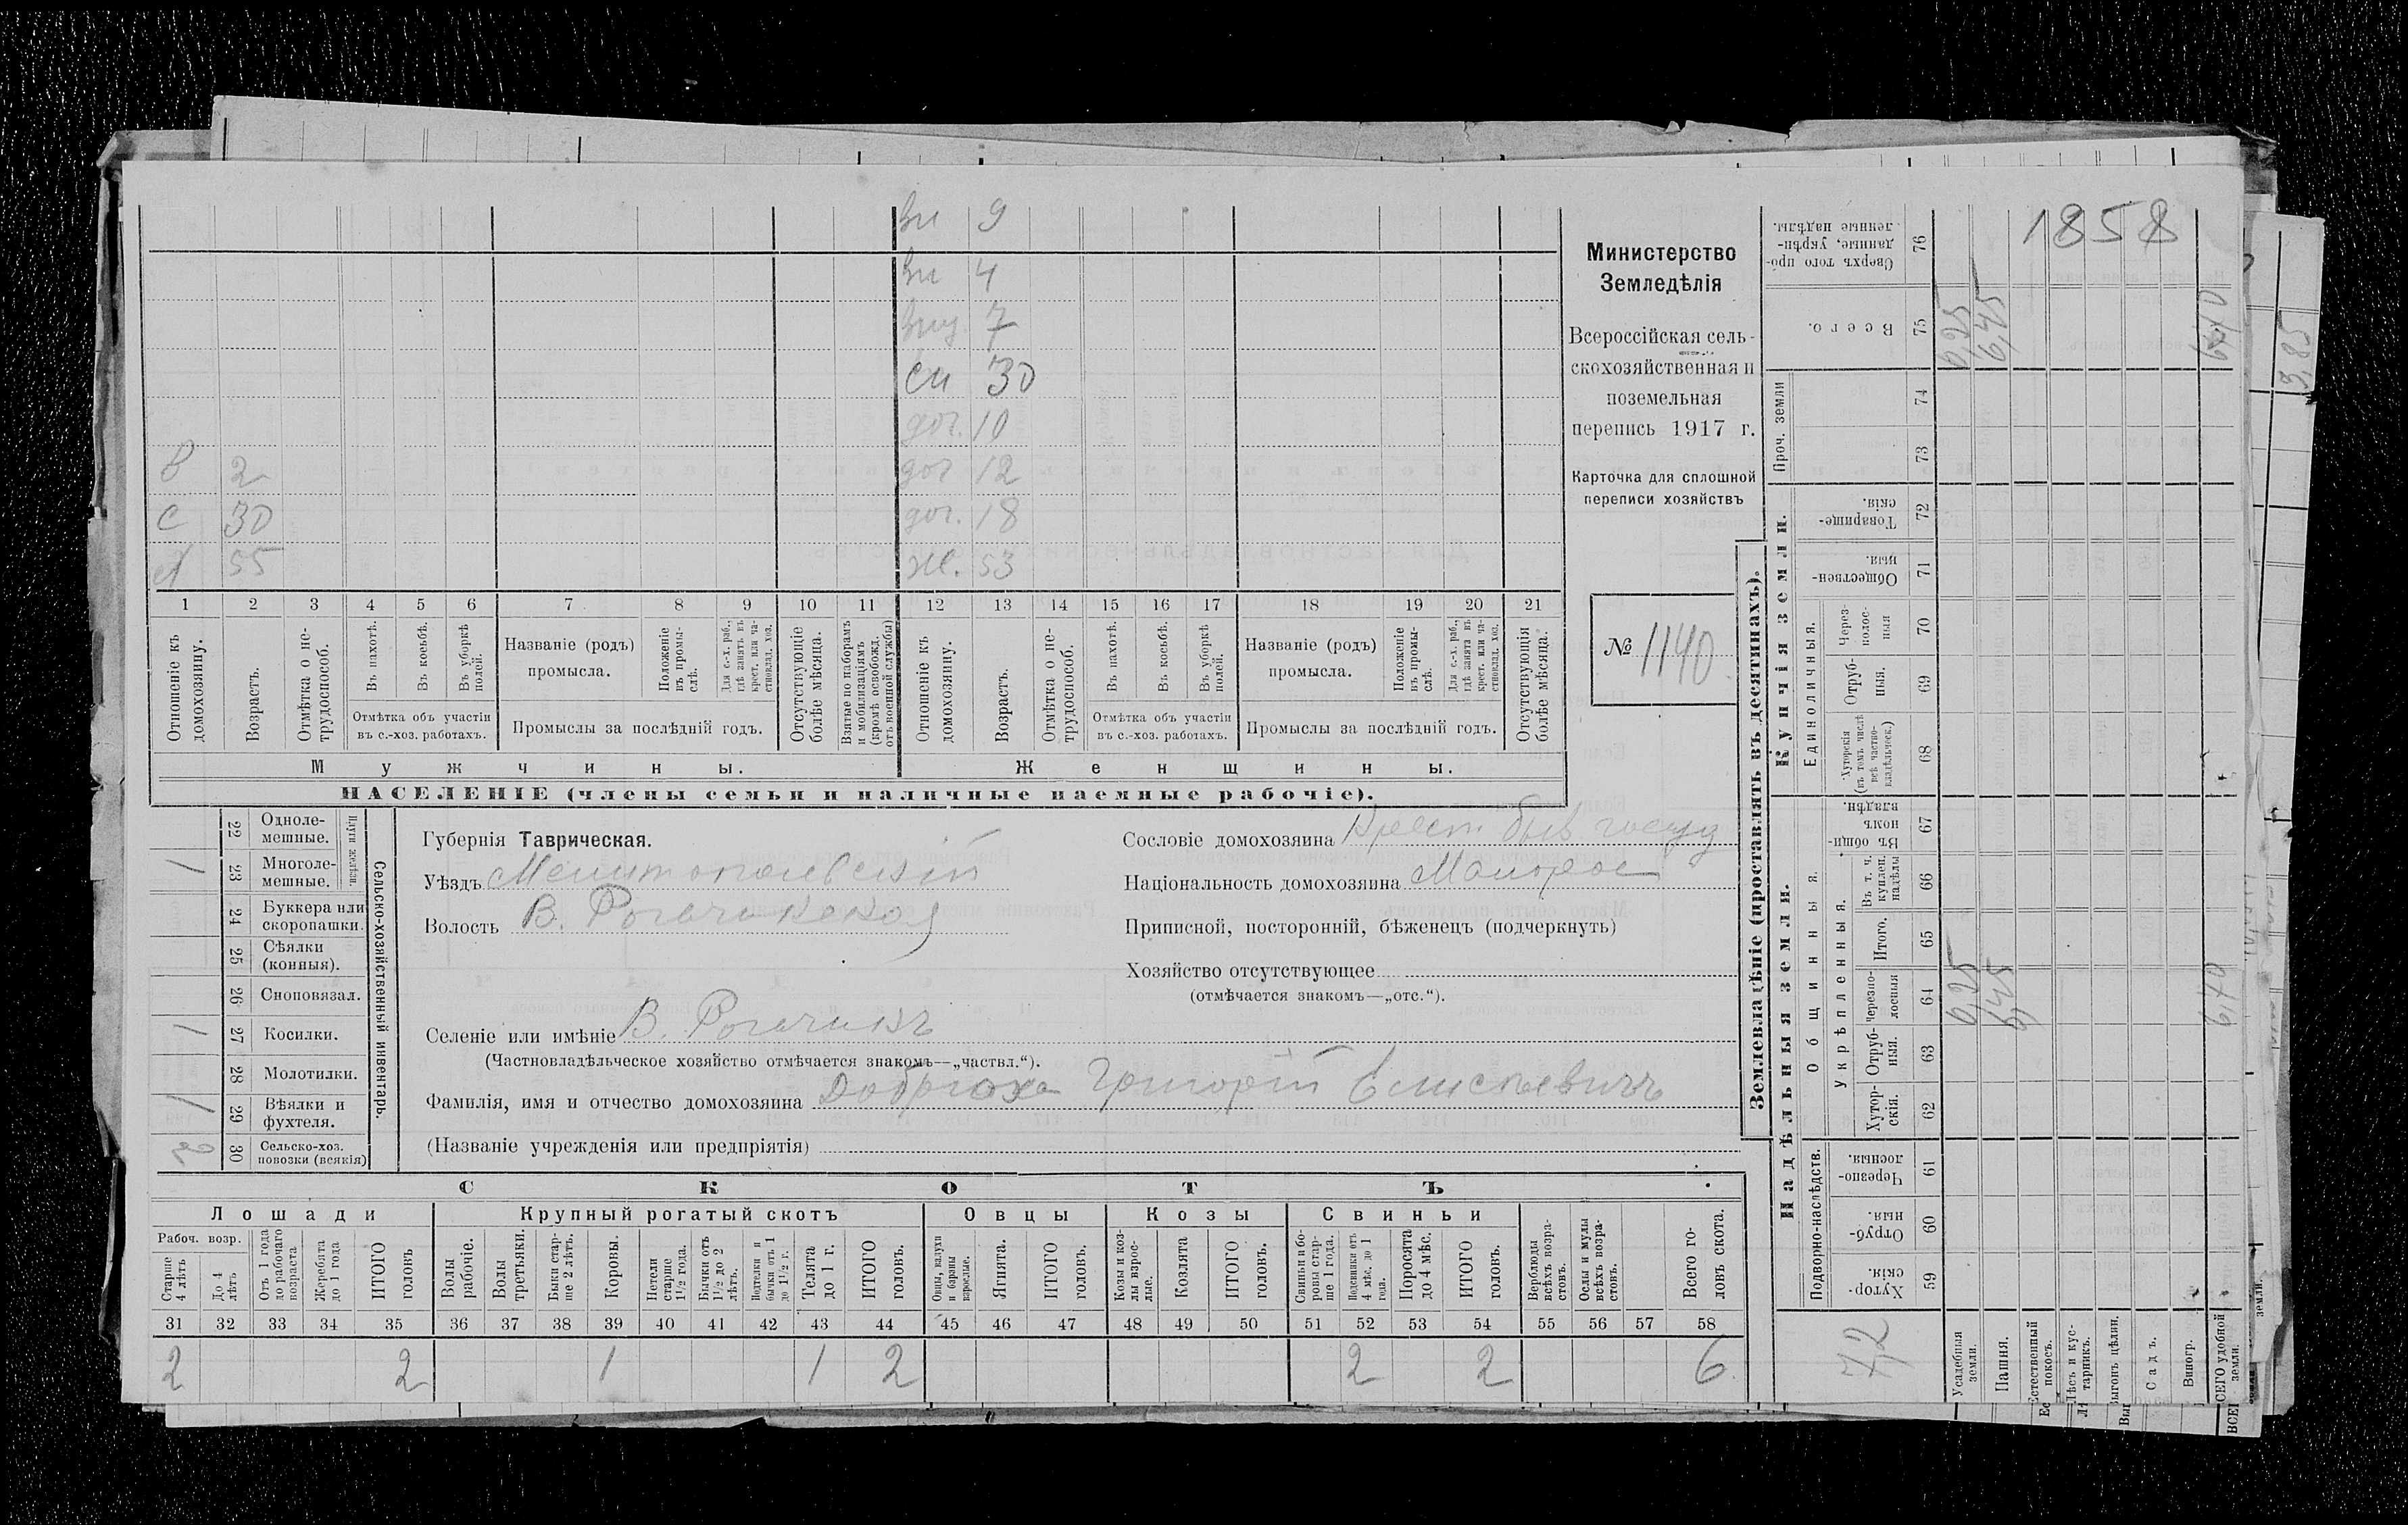 1858
Министерство
Земледѣлія
Всероссійская сель-
скохозяйственная и
поземельная
перепись 1917 г.
Карточка для сплошной
переписи хозяйствъ
№ 1140
вн 9
вн 4
вну. 7
сн 30
доч. 10
В 2 доч 12
С 30 доч. 18
Я 55 ж. 53
1 2 3 4 5 6 7 8 9 10 11 12 13 14 15 16 17 18 19 20 21
Отношеніе къ домохозяину.
Возрастъ.
Отмѣтка о не-трудоспособ.
Въ пахотѣ.
Въ косьбѣ.
Въ уборкѣ полей.
Отмѣтка объ участіи
въ с.-хоз. работахъ.
Названіе (родъ)
промысла.
Положеніе въ промы-слѣ.
Для с.-х. раб., гдѣ занятъ въ крест. или ча-стновлад. хоз.
Промыслы за послѣдній годъ.
Отсутствующіе болѣе мѣсяца.
Взятые по наборамъ и мобилизаціямъ (кромѣ освобожд. отъ военной службы)
Отношеніе къ домохозяину.
Возрастъ.
Отмѣтка о не-трудоспособ.
Въ пахотѣ.
Въ косьбѣ.
Въ уборкѣ полей.
Отмѣтка объ участіи
въ с.-хоз. работахъ.
Названіе (родъ)
промысла.
Положеніе въ промы-слѣ.
Для с.-х. раб., гдѣ занята въ крест. или ча-стновлад. хоз.
Промыслы за послѣдній годъ.
Отсутствующія болѣе мѣсяца.
Мужчины. Женщины.
НАСЕЛЕНІЕ (члены семьи и наличные наемные рабочіе).
Сельско-хозяйственный инвентарь.
Плуги желѣзн.
22 Одноле-мешные.
1 23 Многоле-мешные.
24 Буккера или скоропашки.
25 Сѣялки (конныя).
26 Сноповязал.
1 27 Косилки.
28 Молотилки.
1 29 Вѣялки и фухтеля.
2 30 Сельско-хоз. повозки (всякія)
Губернія Таврическая.
Уѣздъ Мелитопольскій
Волость В. Рогачикская
Сословіе домохозяина Крест. быв. госуд
Національность домохозяина Малорос
Приписной, посторонній, бѣженецъ (подчеркнуть)
Хозяйство отсутствующее
(отмѣчается знакомъ—„отс.“).
Селеніе или имѣніе В. Рогачикъ
(Частновладѣльческое хозяйство отмѣчается знакомъ—„частвл.“).
Фамилія, имя и отчество домохозяина Добрюха Григорій Елисѣевичъ
(Названіе учрежденія или предпріятія)
СКОТЪ.
Лошади Крупный рогатый скотъ Овцы Козы Свиньи
Рабоч. возр.
Старше 4 лѣтъ
До 4 лѣтъ
Отъ 1 года до рабочаго возраста
Жеребята до 1 года
ИТОГО головъ
Волы рабочіе.
Волы третьяки.
Быки стар-ше 2 лѣтъ.
Коровы.
Нетели старше 1½ года.
Бычки отъ 1½ до 2 лѣтъ.
Подтелки и бычки отъ 1 до 1½ г.
Телята до 1 г.
ИТОГО головъ.
Овцы, валухи и бараны взрослые.
Ягнята.
ИТОГО головъ.
Козы и коз-лы взрос-лые.
Козлята
ИТОГО головъ.
Свиньи и бо-ровы стар-ше 1 года.
Подсвинки отъ 4 мѣс. до 1 года.
Поросята до 4 мѣс.
ИТОГО головъ.
Верблюды всѣхъ возра-стовъ.
Ослы и мулы всѣхъ возра-стовъ.
Всего го-ловъ скота.
31 32 33 34 35 36 37 38 39 40 41 42 43 44 45 46 47 48 49 50 51 52 53 54 55 56 57 58
2 2 1 1 2 2 2 6
Землевладѣніе (проставлять въ десятинахъ).
Надѣльныя земли. Купчія земли. Проч. земли
Подворно-наслѣдств.
Общинныя.
Укрѣпленныя.
Единоличныя.
Хутор-скія. 59
Отруб-ныя. 60
Черезпо-лосныя. 61
Хутор-скія. 62
Отруб-ныя. 63
Черезпо-лосныя 64
Итого. 65
Въ т. ч. куплен. надѣлы 66
Въ общин-номъ владѣн. 67
Хуторскія (въ томъ числѣ всѣ частно-владѣльческ.) 68
Отруб-ныя. 69
Через-полос-ныя 70
Обществен-ныя. 71
Товарище-скія. 72
73
74
Всего. 75
Сверхъ того про-данные, укрѣп-ленные надѣлы. 76
7,2
Усадебныя земли. 0,25 0,25
Пашня. 6,45 6,45
Естественный покосъ.
Лѣсъ и кус-тарникъ.
Выгонъ цѣлин.
Садъ.
Виногр.
ВСЕГО удобной земли. 6,70 6,70
3,85